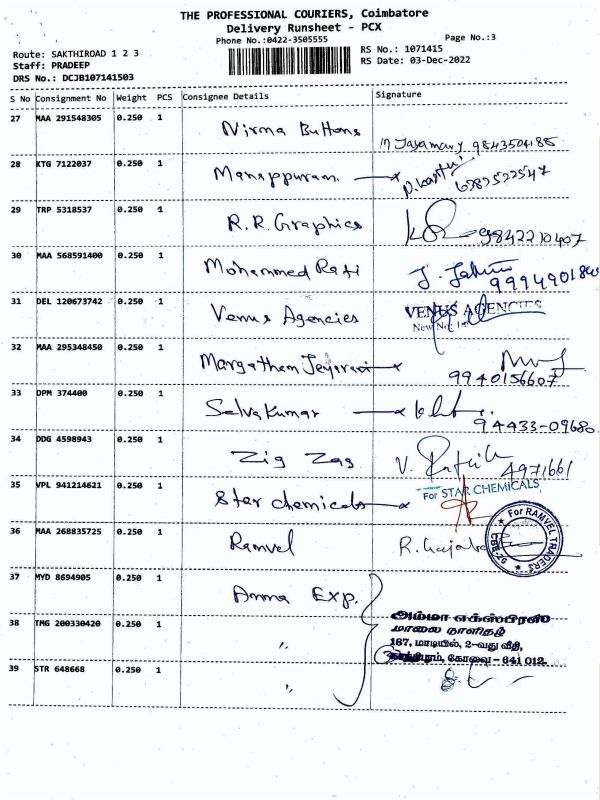 THE PROFESSIONAL COURIERS, Coimbatore
Delivery Runsheet - PCX
Phone No.:0422-3505555
Page No.:3
Route: SAKTHIROAD 1 2 3
RS No.: 1071415
Staff: PRADEEP
RS Date: 03-Dec-2022
DRS No.: DCJB107141503
S No Consignment No Weight PCS Consignee Details Signature
27 MAA 291548305 0.250 1 Nirma Buttons 9843504185
28 KTG 7122037 0.250 1 Manappuram
29 TRP 5318537 0.250 1 R.R. Graphics 9842210407
30 MAA 568591400 0.250 1 Mohammed Rafi
31 DEL 120673742 0.250 1 Venus Agencies VENUS AGENCIES
New No:
32 MAA 295348450 0.250 1 9940156607
33 DPM 374400 0.250 1 Selvakumar 94433-09680
34 DDG 4598943 0.250 1 Zig Zag V. 4971661
35 VPL 941214621 0.250 1 Star chemicals For STAR CHEMICALS
36 MAA 268835725 0.250 1 Ramvel R. For RAMVEL TRADERS
37 MYD 8694905 0.250 1 Amma Exp.
அம்மா எக்ஸ்பிரஸ்
38 TMG 200330420 0.250 1 " மாலை நாளிதழ்
187, மாடியில், 2-வது வீதி,
கோவை - 641 012.
39 STR 648668 0.250 1 "